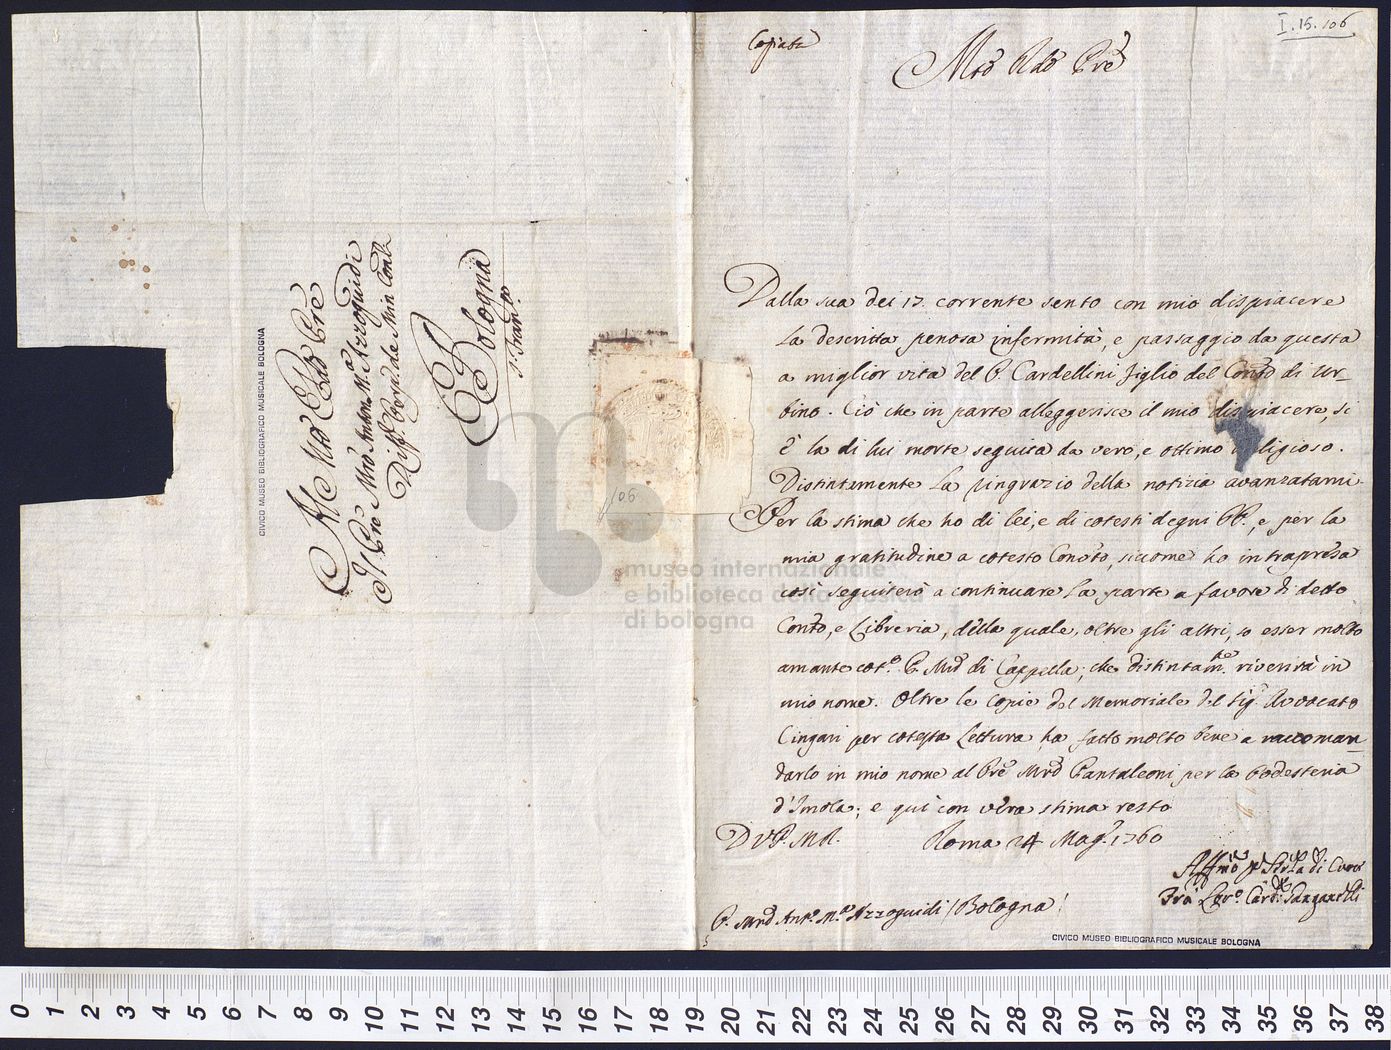 I.15.106
Copiata
Mto Rdo Pre
Dalla sua dei 17. corrente sento con mio dispiacere
la descritta penosa infermità, e passaggio da questa
a miglior vita del P. Cardellini figlio del Conto di Ur-
bino. Ciò che in parte alleggerisce il mio dispiacere, si
è la di lui morte seguita da vero, e ottimo religioso.
Distintamente la ringrazio della notizia avanzatami.
Per la stima che ho di lei, e di cotesti degni PP., e per la
mia gratitudine a cotesto Conto, siccome ho intrapresa
così seguiterò a continuare la parte a favore di detto
Conto, e Libreria, della quale, oltre gli altri, so esser molto
amante coto. P. Mro di Cappella; che distintamte. riverirà in
mio nome. Oltre le copie del Memoriale del Sig. Avvocato
Cingari per cotesta Lettura ha fatto molto bene a raccoman-
darlo in mio nome al Pre Mro Pantaleoni per la Podesteria
d'Imola; e qui con vera stima resto
D V P. M R. Roma 24 Mago. 1760
Affmo per di Cuore
Fra Loro. Card. Ganganelli
P. Mro Anto. Ma. Azzoguidi / Bologna /
CIVICO MUSEO BIBLIOGRAFICO MUSICALE BOLOGNA
Al Mto Rdo Pre
Il Pre Mro Anton Ma. Azzoguidi
Diffe. Perp. de Min Conti
Bologna
S. Franco.
CIVICO MUSEO BIBLIOGRAFICO MUSICALE BOLOGNA
106
museo internazionale
e biblioteca della musica
di bologna
0 1 2 3 4 5 6 7 8 9 10 11 12 13 14 15 16 17 18 19 20 21 22 23 24 25 26 27 28 29 30 31 32 33 34 35 36 37 38